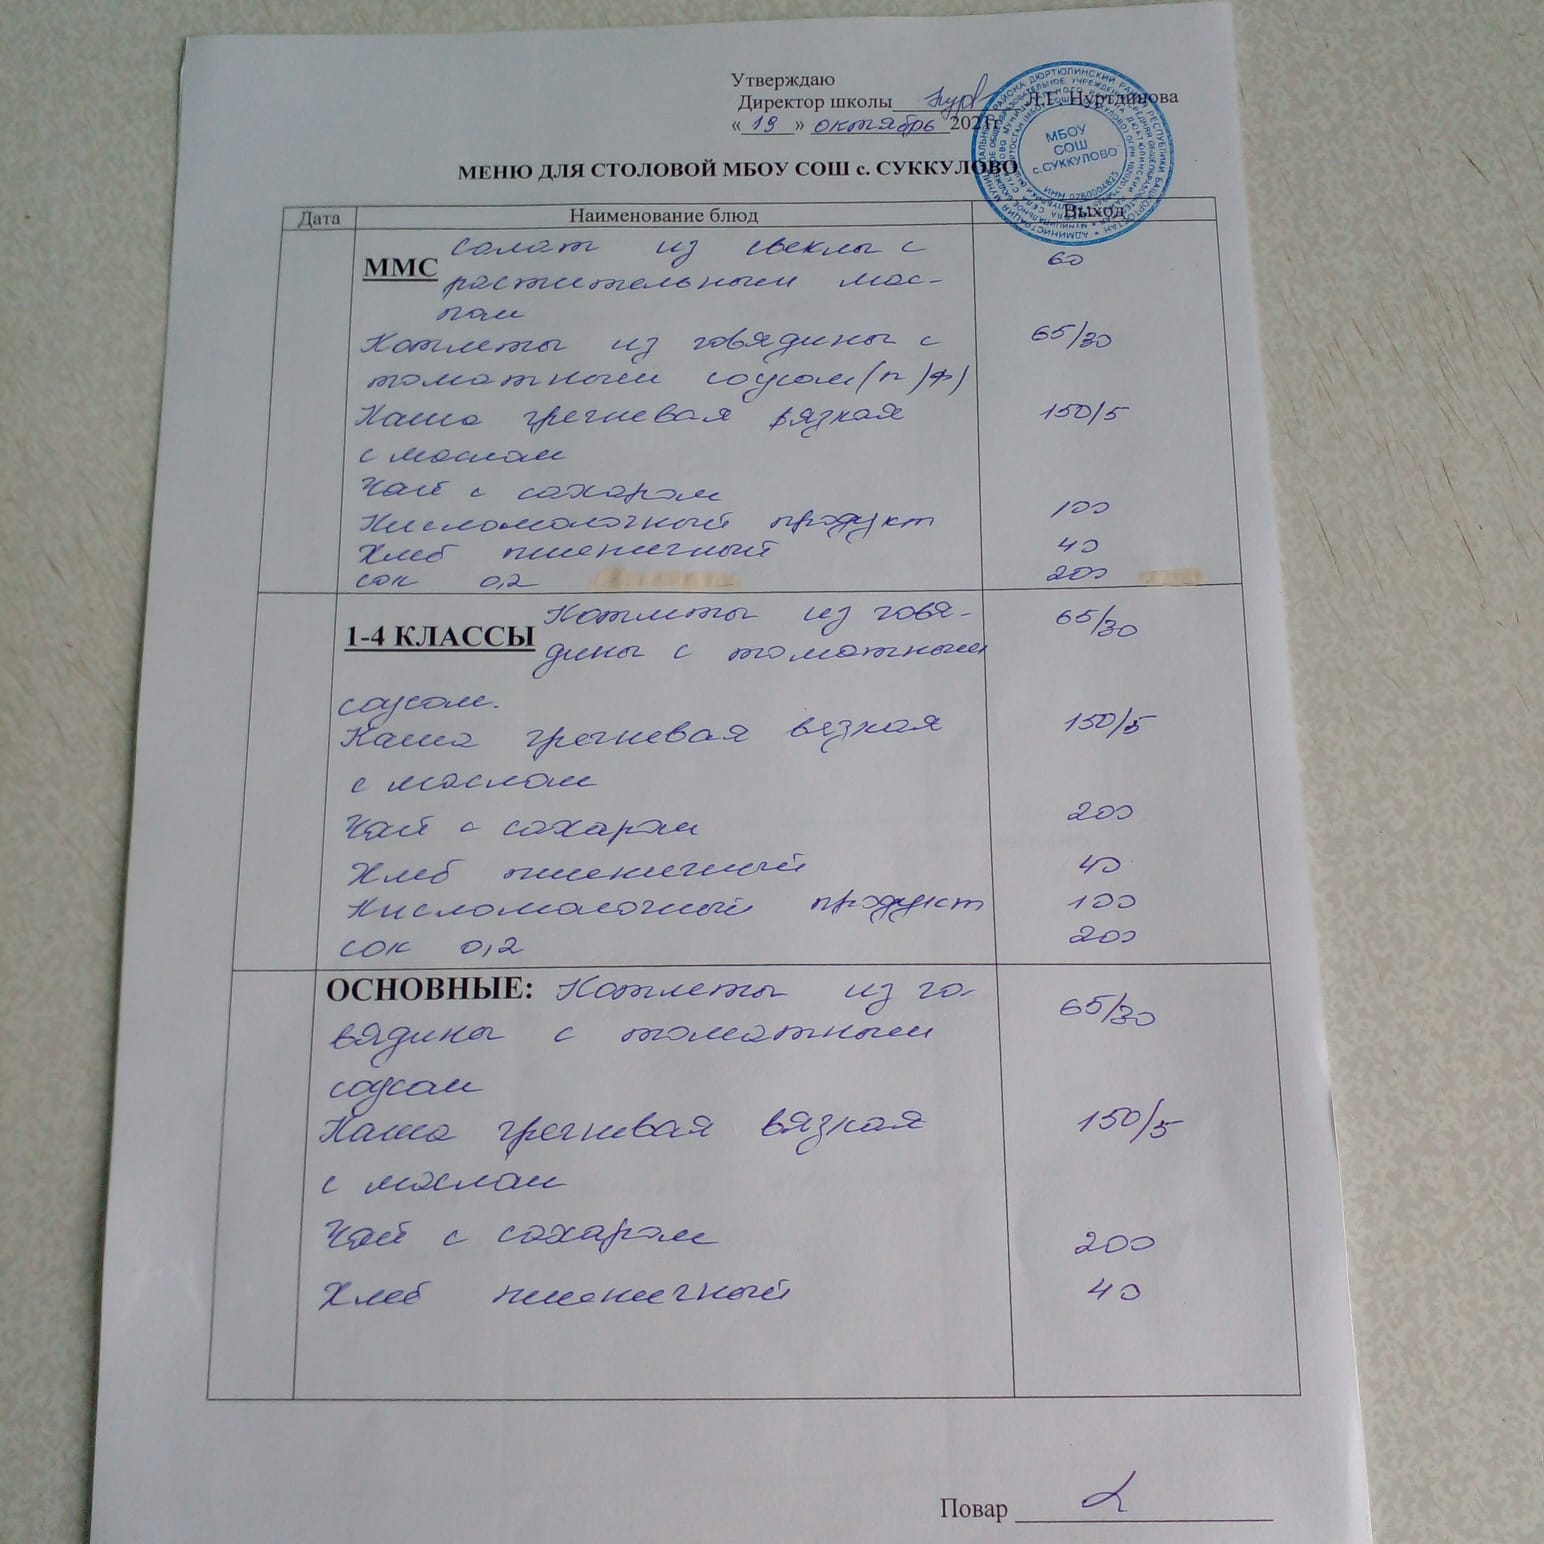 Утверждаю
Директор школы Л.Г. Нуртдинова
« 19 » октябрь 2021г
МБОУ
СОШ
с.СУККУЛОВО
ИНН 0260004825
МЕНЮ ДЛЯ СТОЛОВОЙ МБОУ СОШ с. СУККУЛОВО
Дата Наименование блюд Выход
ММС салат из свеклы с 60
растительным мас-
лом
Котлеты из говядины с 65/30
томатным соусом (п/ф)
Каша гречневая вязкая 150/5
с маслом
Чай с сахаром
Кисломолочный продукт 100
Хлеб пшеничный 40
сок 0,2 200
1-4 КЛАССЫ Котлеты из говя- 65/30
дины с томатным
соусом.
Каша гречневая вязкая 150/5
с маслом
Чай с сахаром 200
Хлеб пшеничный 40
Кисломолочный продукт 100
сок 0,2 200
ОСНОВНЫЕ: Котлеты из го- 65/30
вядины с томатным
соусом
Каша гречневая вязкая 150/5
с маслом
Чай с сахаром 200
Хлеб пшеничный 40
Повар